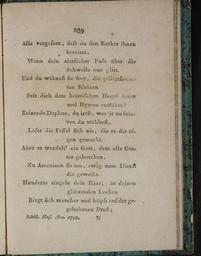 239
Alle vergessen, daß du den Kerker ihnen
bereitet,
Wenn dein zierlicher Fuß über die
Schwelle nun glitt.
Und du wähnest sie frey, die
Seit dich dem heimischen Heerd
und Hymen entführt?
Reizende Daphne, du irrst, wer je zu
ven du wählest,
Loset die Fessel sich nie, die er die
gen gemacht.
Aber es wandelt' ein Gott, dem alle Göt-
ter gehorchen,
Zu Amoretten sie um, ewig zum Dienst
dir geweiht.
Hunderte ziegeln dein Haar, in deinen
glänzenden Locken
Birgt sich mancher und hüpft auf der ge-
hobenen Brust;
Schill. Mus. Alm. 1798. N